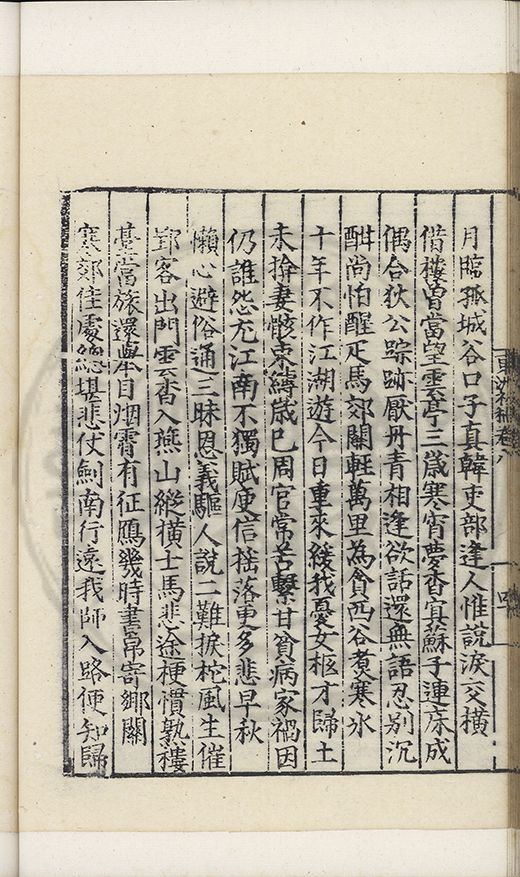 月臨孤城谷口子真韓吏部逢人惟說淚交橫
借樓曾當望雲亭三歲寒宵夢杳冥蘇子連床成
偶合狄公踪跡厭丹青相逢欲話還無語忍别沉
酣尚怕醒疋馬郊關輕萬里為貪西谷煑寒氷
十年不作江湖遊今日重來緩我憂女柩才歸土
未揜妻骸束縛歲已周官常苦繫甘貧病家禍因
仍誰怨尤江南不獨賦庾信摇落更多悲早秋
懶心避俗通三昧恩義驅人說二難捩柁風生催
郢客出門雲杳入燕山縱橫士馬悲途梗慣熟樓
臺當旅還舉目烟霄有征鴈幾時書帛寄鄉關
寒郊佳處總堪悲仗劍南行遠我師入路便知歸
卷八